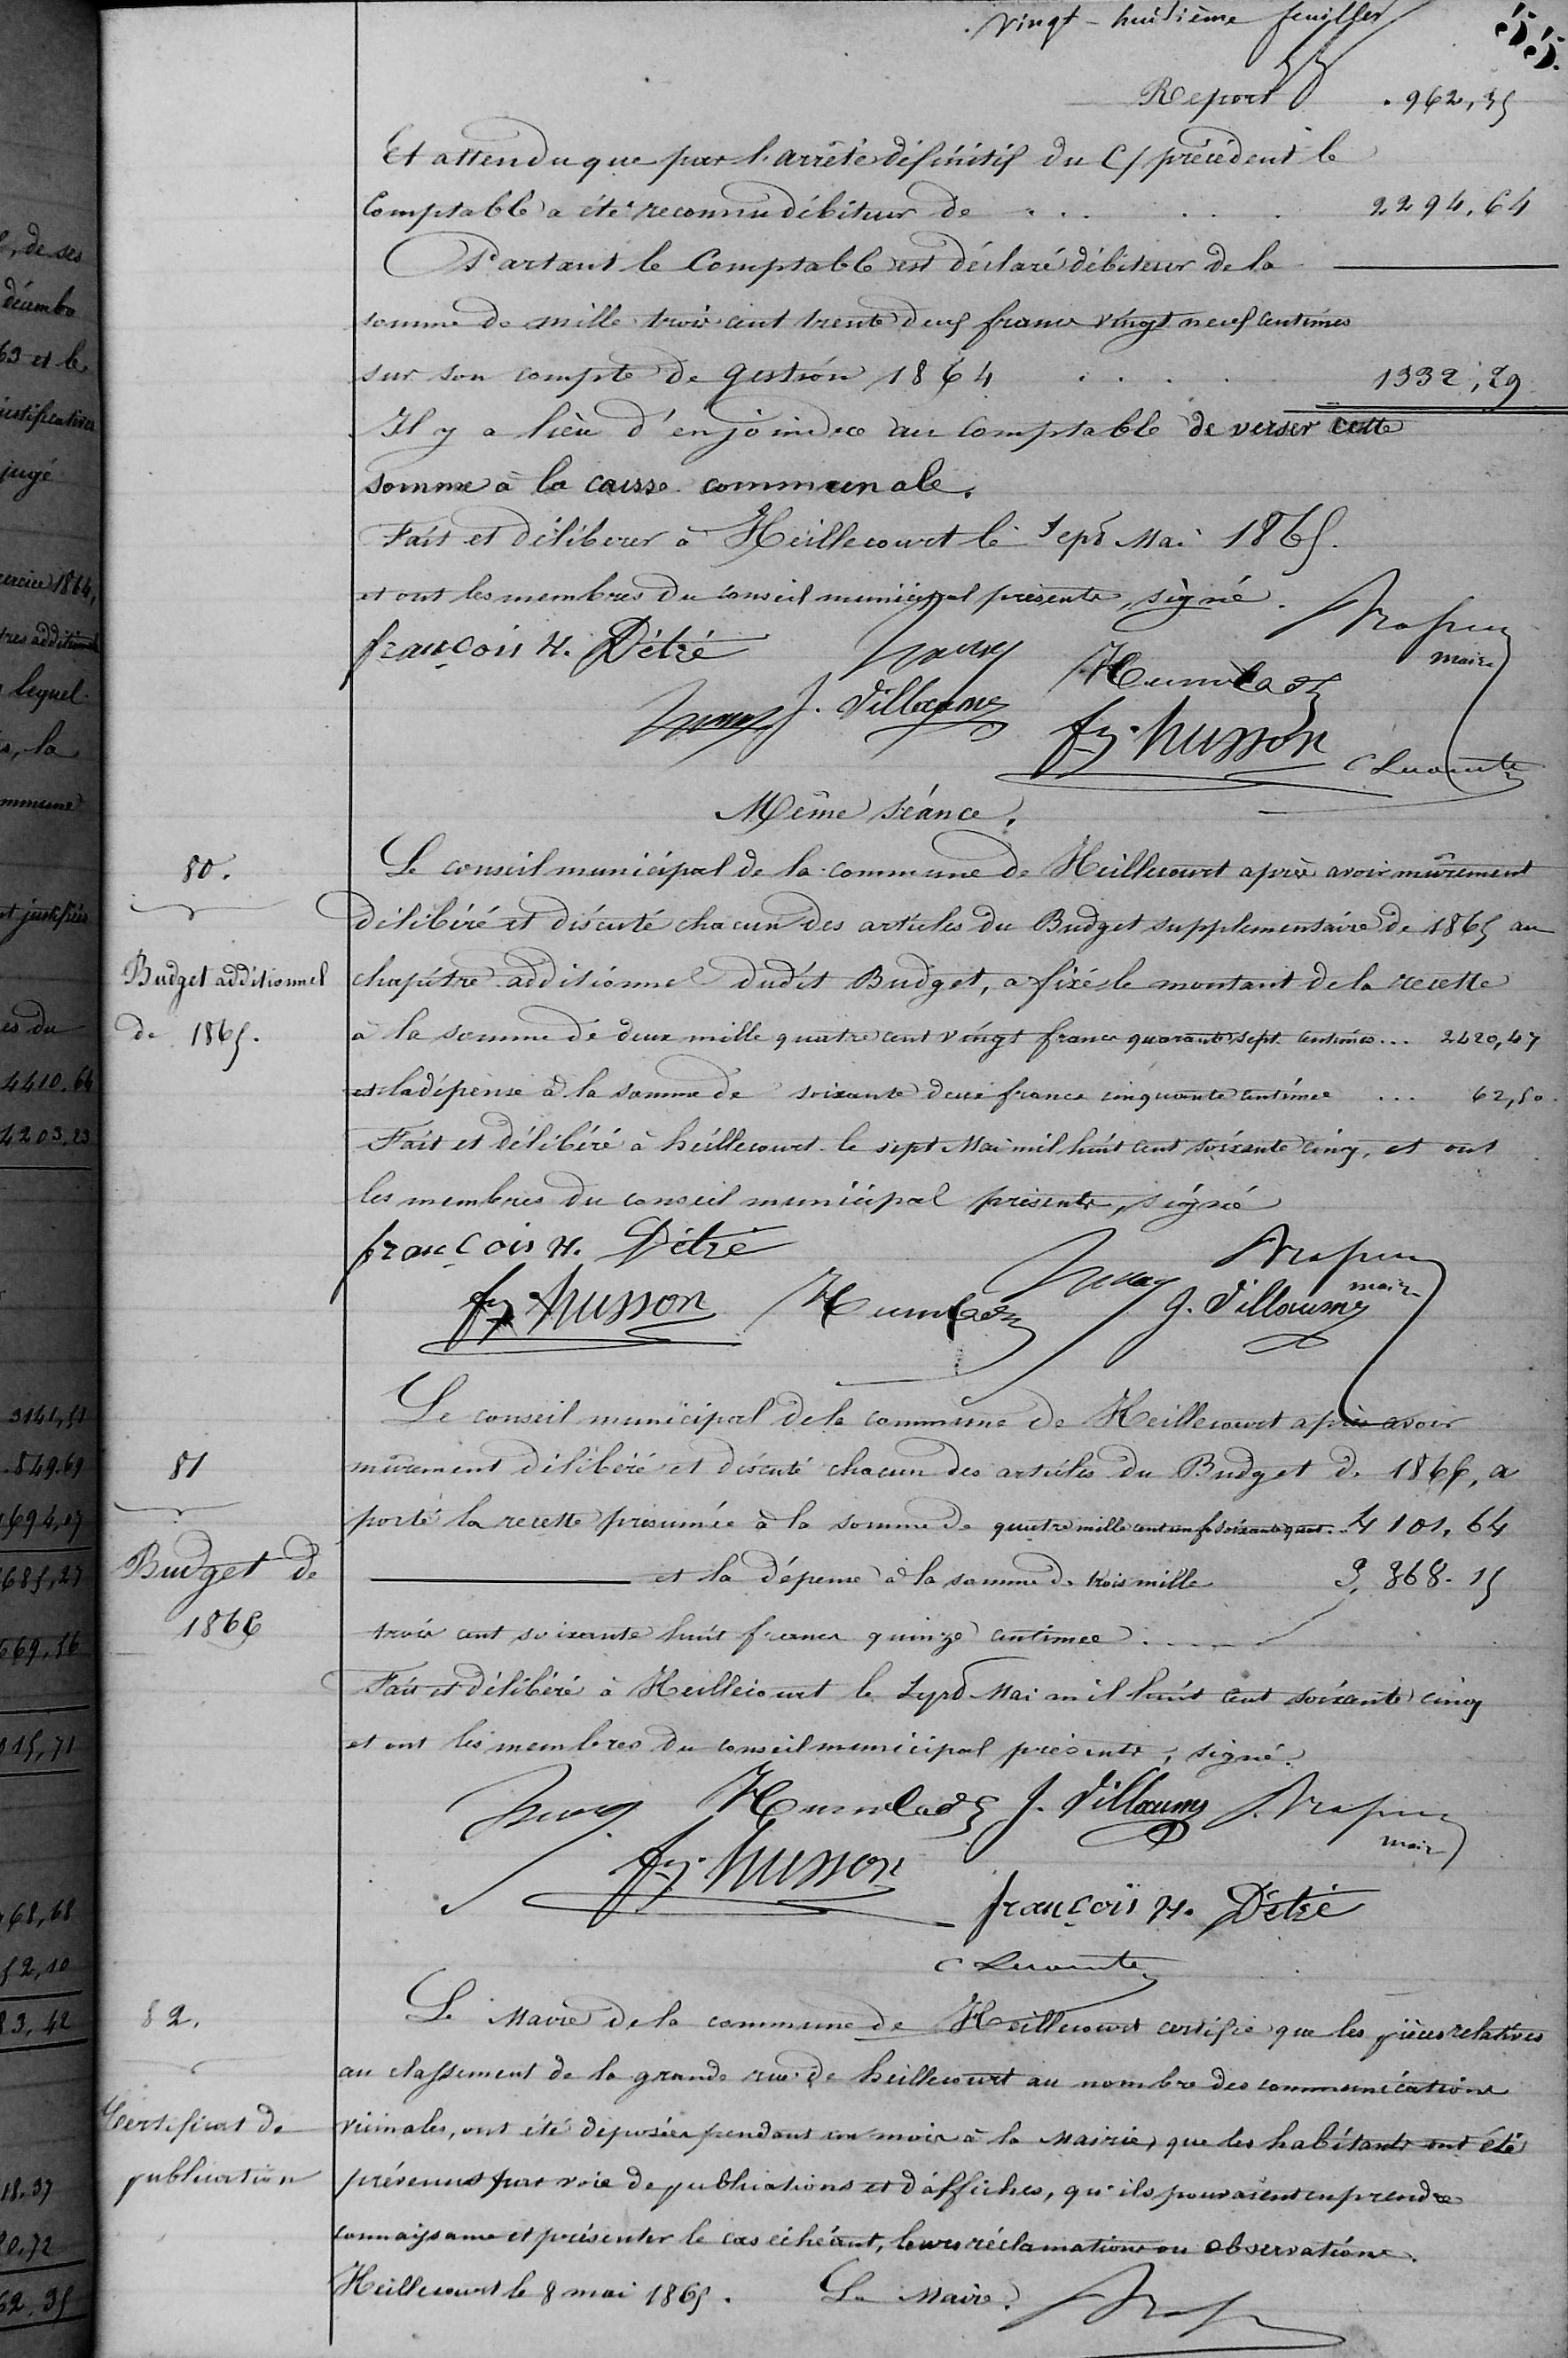 Vingt-huitième feuillet
55.
Report . 962,35
Et attendu que par l'arrêté définitif du C/ précédent le
Comptable a été reconnu débiteur de . . . . . . 2294,64
Partant le Comptable est déclaré débiteur de la
somme de mille trois cent trente deux francs vingt neuf centimes
sur son compte de gestion 1864 . . . . 1332,29
Il y a lieu d'enjoindre au Comptable de verser cette
somme à la caisse communale.
Fait et délibérer à Heillecourt le Sept Mai 1865.
et ont les membres du conseil municipal présents, signé.
françois H. Détré
maire
J. Villaume
fs. husson
C Lecomte
Même séance.
80.
Budget additionnel
de 1865.
Le conseil municipal de la commune de Heillecourt après avoir mûrement
délibéré et discuté chacun des articles du Budget supplémentaire de 1865 au
chapitre additionnel dudit Budget, a fixé le montant de la recette
à la somme de deux mille quatre cent vingt francs quarante sept centimes... 2420,47
et la dépense à la somme de soixante deux francs cinquante centimes ... 62,50.
Fait et délibéré à heillecourt le sept Mai mil huit cent soixante cinq, et ont
les membres du conseil municipal présents, signé
françois H. Détré
maire
fs husson
J. Villaume
81
Budget de
1866
Le conseil municipal de la commune de Heillecourt après avoir
mûrement délibéré et discuté chacun des articles du Budget de 1866, a
porté la recette présumée à la somme de quatre mille cent un f. soixante quat. 4101,64
et la dépense à la somme de trois mille 3,368.15
trois cent soixante huit francs quinze centimes . . . .
Fait et délibéré à Heillecourt le Sept Mai mil huit cent soixante cinq
et ont les membres du conseil municipal présents, signé.
J. Villaume
maire
fs. husson
françois H. Détré
C Lecomte
82.
Certificat de
publication
Le Maire de la commune de Heillecourt certifie que les pièces relatives
au classement de la grande rue de heillecourt au nombre des communications
vicinales, ont été déposées pendant un mois à la Mairie, que les habitants ont été
prévenus par voie de publications et d'affiches, qu'ils pouvaient en prendre
connaissance et présenter le cas échéant, leurs réclamations ou observations.
Heillecourt le 8 mai 1865. Le Maire.